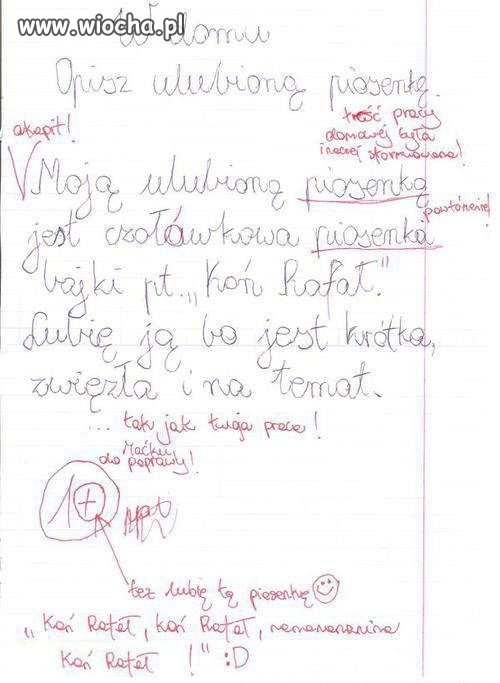 www.wiocha.pl
W domu
Opisz ulubioną piosenkę.
treść pracy
domowej była
inaczej sformułowana!
akapit!
V Moją ulubioną piosenką
powtórzenie!
jest czołówkowa piosenka
bajki pt. „Koń Rafał."
Lubię ją bo jest krótka,
zwięzła i na temat.
... tak jak twoja praca!
Maćku
do poprawy!
1+
też lubię tą piosenkę
„Koń Rafał, koń Rafał, nananananana
Koń Rafał !" :D